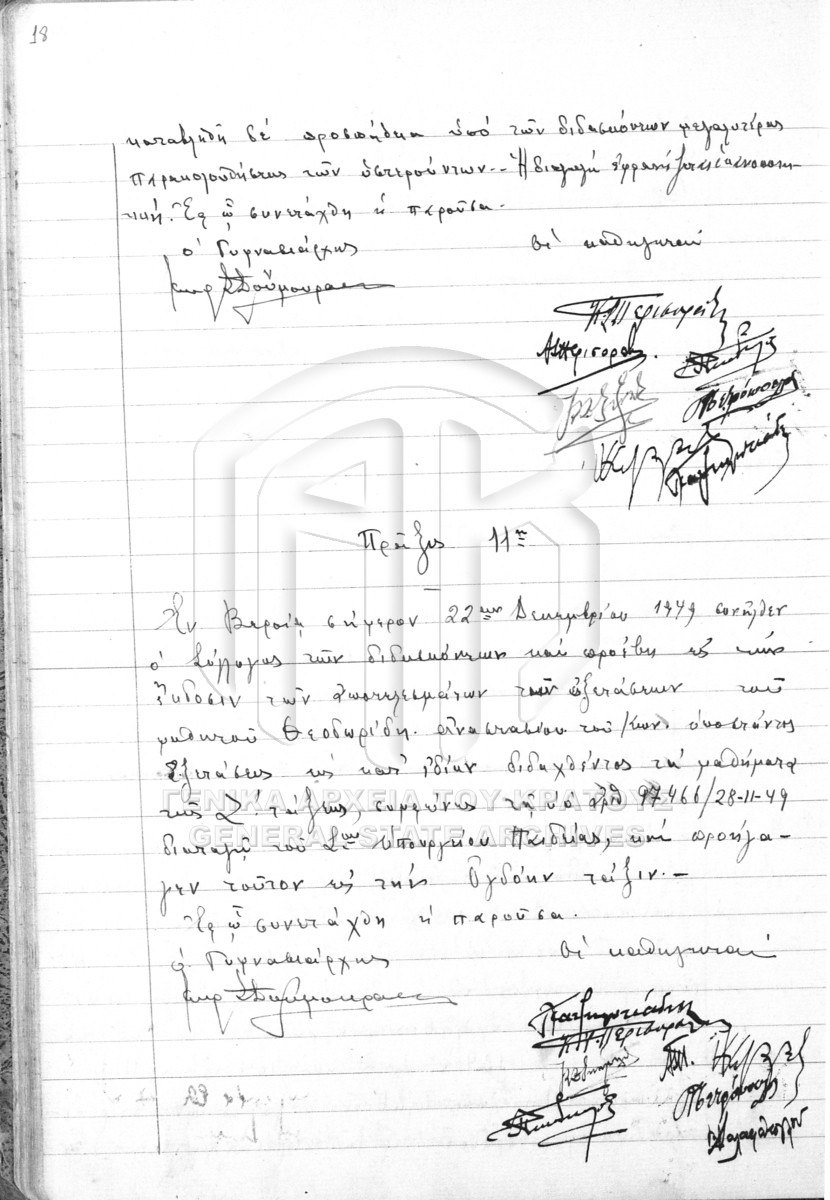 18
καταβληθῇ δέ προσπάθεια ὑπό τῶν διδασκόντων μεγαλυτέρας
παρακολουθήσεως τῶν ὑστερούντων.- Ἡ διαγωγή ἐμφανίζεται ἱκανοποιη-
τική. Ἐφ' ᾧ συνετάχθη ἡ παροῦσα.
ὁ Γυμνασιάρχης
Οἱ καθηγηταί
Πρᾶξις 11η
Ἐν Βεροίᾳ σήμερον 22αν Δεκεμβρίου 1949 συνῆλθεν
ὁ Σύλλογος τῶν διδασκόντων καί προέβη εἰς τήν
ἔκδοσιν τῶν ἀποτελεσμάτων τῶν ἐξετάσεων τοῦ
μαθητοῦ Θεοδωρίδη Ἀναστασίου τοῦ Κων. ὑποστάντος
ἐξετάσεις ὡς κατ' ἰδίαν διδαχθέντος τά μαθήματα
τῆς Ζ' τάξεως, συμφώνως τῇ ὑπ' ἀριθ 97466/28-11-49
διαταγῇ τοῦ Σεβ. Ὑπουργείου Παιδείας, καί προήγα-
γεν τοῦτον εἰς τήν Ὀγδόην τάξιν.-
Ἐφ' ᾧ συνετάχθη ἡ παροῦσα.
ὁ Γυμνασιάρχης
Οἱ καθηγηταί
ΓΕΝΙΚΑ ΑΡΧΕΙΑ ΤΟΥ ΚΡΑΤΟΥΣ
GENERAL STATE ARCHIVES